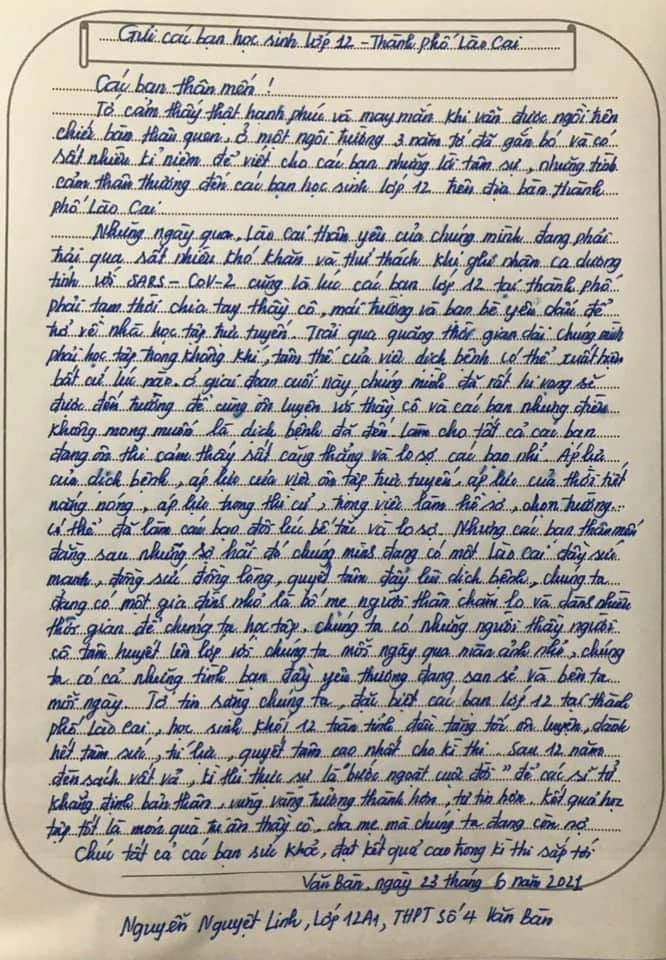 Gửi các bạn học sinh lớp 12 - Thành phố Lào Cai
Các bạn thân mến !
Tớ cảm thấy thật hạnh phúc và may mắn khi vẫn được ngồi trên
chiếc bàn thân quen, ở một ngôi trường 3 năm tớ đã gắn bó và có
rất nhiều kỉ niệm để viết cho các bạn những lời tâm sự, những tình
cảm thân thương đến các bạn học sinh lớp 12 trên địa bàn thành
phố Lào Cai
Những ngày qua, Lào Cai thân yêu của chúng mình đang phải
trải qua rất nhiều khó khăn và thử thách khi ghi nhận ca dương
tính với SARS - CoV-2 cũng là lúc các bạn lớp 12 tại thành phố
phải tạm thời chia tay thầy cô, mái trường và bạn bè yêu dấu để
trở về nhà học tập trực tuyến. Trải qua quãng thời gian dài chúng mình
phải học tập trong không khí, tâm thế của việc dịch bệnh có thể xuất hiện
bất cứ lúc nào. Ở giai đoạn cuối này chúng mình đã rất hi vọng sẽ
được đến trường để cùng ôn luyện với thầy cô và các bạn nhưng điều
không mong muốn là dịch bệnh đã đến làm cho tất cả các bạn
đang ôn thi cảm thấy rất căng thẳng và lo sợ các bạn nhỉ. Áp lực
của dịch bệnh, áp lực của việc ôn tập trực tuyến, áp lực của thời tiết
nắng nóng, áp lực trong thi cử, trong việc làm hồ sơ, chọn trường...
có thể đã làm các bạn đôi lúc bế tắc và lo sợ. Nhưng các bạn thân mến
đằng sau những sợ hãi đó chúng mình đang có một Lào Cai đầy sức
mạnh, đồng sức đồng lòng, quyết tâm đẩy lùi dịch bệnh, chúng ta
đang có một gia đình nhỏ là bố mẹ người thân chăm lo và dành nhiều
thời gian để chúng ta học tập, chúng ta có những người thầy người
cô tâm huyết lên lớp với chúng ta mỗi ngày qua màn ảnh nhỏ, chúng
ta có cả những tình bạn đầy yêu thương đang san sẻ và bên ta
mỗi ngày. Tớ tin rằng chúng ta, đặc biệt các bạn lớp 12 tại thành
phố Lào Cai, học sinh khối 12 toàn tỉnh đều tăng tốc ôn luyện, dành
hết tâm sức, trí lực, quyết tâm cao nhất cho kì thi. Sau 12 năm
đèn sách vất vả, kì thi thực sự là "bước ngoặt cuộc đời" để các sĩ tử
khẳng định bản thân, vững vàng trưởng thành hơn, tự tin hơn. Kết quả học
tập tốt là món quà tri ân thầy cô, cha mẹ mà chúng ta đang còn nợ
Chúc tất cả các bạn sức khoẻ, đạt kết quả cao trong kì thi sắp tới
Văn Bàn, ngày 23 tháng 6 năm 2021
Nguyễn Nguyệt Linh, Lớp 12A1, THPT Số 4 Văn Bàn